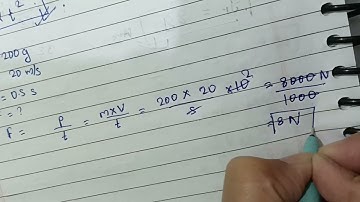 t²
200 g
20 m/s
= 0.5 s
= ?
F = P/t = m×V/t = 200 × 20 × 10²/5 = 8000 N/1000
= 8 N